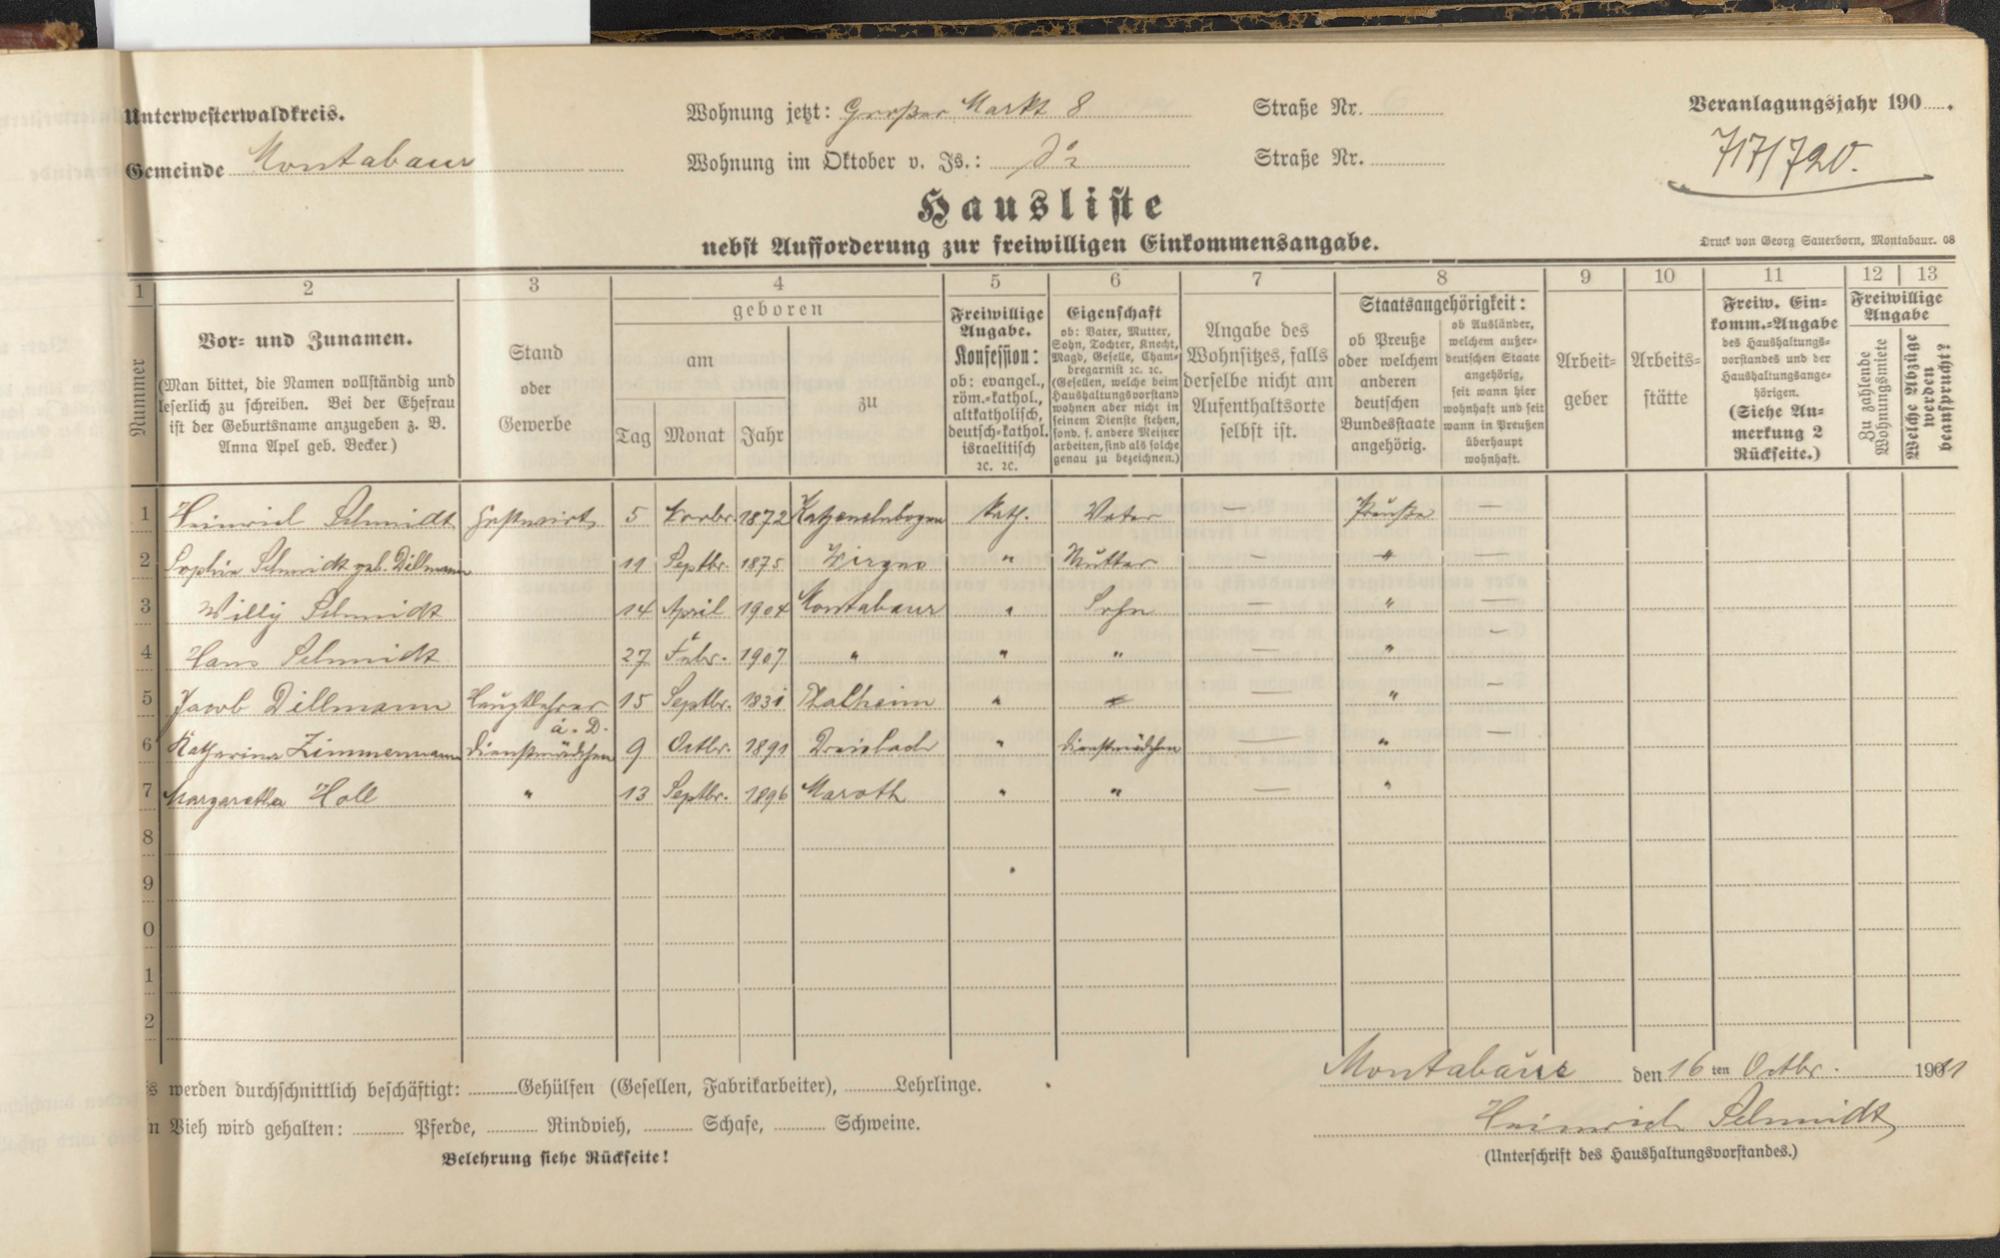 Unterwesterwaldkreis.
Gemeinde Montabaur
Wohnung jetzt: Großer Markt 8 Straße Nr.
Wohnung im Oktober v. Js.: do Straße Nr.
Veranlagungsjahr 190 .
717/720.
Hausliste
nebst Aufforderung zur freiwilligen Einkommensangabe.
Druck von Georg Sauerborn, Montabaur. 08
1 2 3 4 5 6 7 8 9 10 11 12 13
Nummer
Vor- und Zunamen.
(Man bittet, die Namen vollständig und
leserlich zu schreiben. Bei der Ehefrau
ist der Geburtsname anzugeben z. B.
Anna Apel geb. Becker.)
Stand
oder
Gewerbe
geboren
am
Tag Monat Jahr
zu
Freiwillige
Angabe.
Konfession:
ob: evangel.,
röm.-kathol.,
altkatholisch,
deutsch-kathol.
israelitisch
ꝛc. ꝛc.
Eigenschaft
ob: Vater, Mutter,
Sohn, Tochter, Knecht,
Magd, Geselle, Cham-
bregarnist ꝛc. ꝛc.
(Gesellen, welche beim
Haushaltungsvorstand
wohnen aber nicht in
seinem Dienste stehen,
sond. f. andere Meister
arbeiten, sind als solche
genau zu bezeichnen.)
Angabe des
Wohnsitzes, falls
derselbe nicht am
Aufenthaltsorte
selbst ist.
Staatsangehörigkeit:
ob Preuße
oder welchem
anderen
deutschen
Bundesstaate
angehörig.
ob Ausländer,
welchem außer-
deutschen Staate
angehörig,
seit wann hier
wohnhaft und seit
wann in Preußen
überhaupt
wohnhaft.
Arbeit-
geber
Arbeits-
stätte
Freiw. Ein-
komm.-Angabe
des Haushaltungs-
vorstandes und der
Haushaltungsange-
hörigen.
(Siehe An-
merkung 2
Rückseite.)
Freiwillige
Angabe
Zu zahlende
Wohnungsmiete
Welche Abzüge
werden
beansprucht?
1 Heinrich Schmidt Gastwirt 5 Novbr. 1872 Katzenelnbogen Kath. Vater — Preuße —
2 Sophie Schmidt geb. Dillmann 11 Septbr. 1875 Wirges " Mutter — " —
3 Willy Schmidt 14 April 1904 Montabaur " Sohn — " —
4 Hans Schmidt 27 Febr. 1907 " " " — " —
5 Jacob Dillmann Hauptlehrer a. D. 15 Septbr. 1831 Thalheim " — " —
6 Katharina Zimmermann Dienstmädchen 9 Octbr. 1891 Dreisbach " Dienstmädchen — " —
7 Margaretha Holl " 13 Septbr. 1896 Maroth " " — "
8
9
0
1
2
s werden durchschnittlich beschäftigt: Gehülfen (Gesellen, Fabrikarbeiter), Lehrlinge.
n Vieh wird gehalten: Pferde, Rindvieh, Schafe, Schweine.
Belehrung siehe Rückseite!
Montabaur den 16 ten Octbr. 1911
Heinrich Schmidt
(Unterschrift des Haushaltungsvorstandes.)